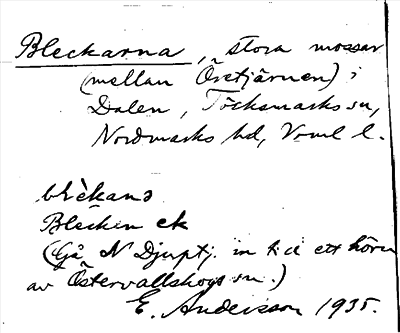 Bleckarna, stora mossar
(mellan Öretjärnen) i
Dalen, Töcksmarks sn,
Nordmarks hd, Verml l.
blèkanə
Blecken ek
(Gå N Djuptj. in till ett hörn
av Östervallskogs sn.)
E. Andersson 1935.